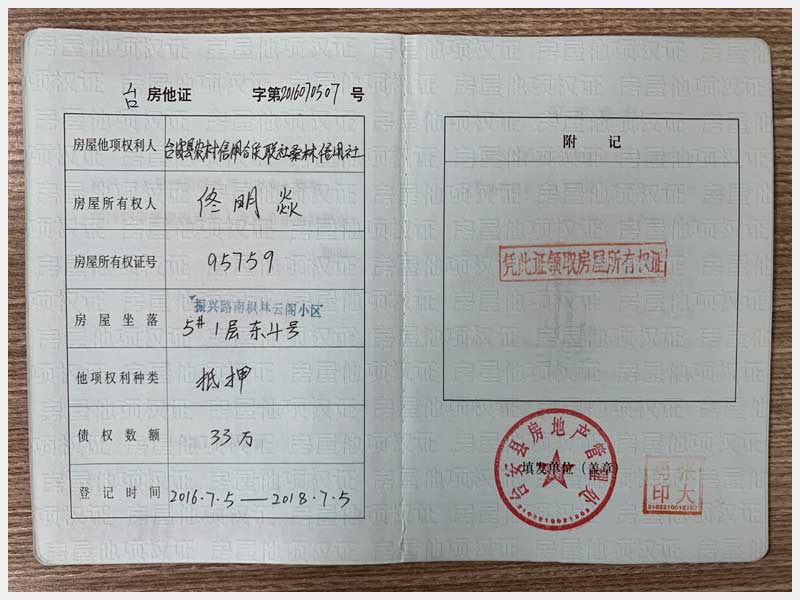 台 房他证 字第2016070507 号
房屋他项权利人 台安县农村信用合作联社桑林信用社
房屋所有权人 佟明焱
房屋所有权证号 95759
房屋坐落 振兴路南枫林云阁小区
5# 1层东4号
他项权利种类 抵押
债权数额 33万
登记时间 2016.7.5——2018.7.5
附 记
凭此证领取房屋所有权证
台安县房地产管理处
填发单位(盖章)